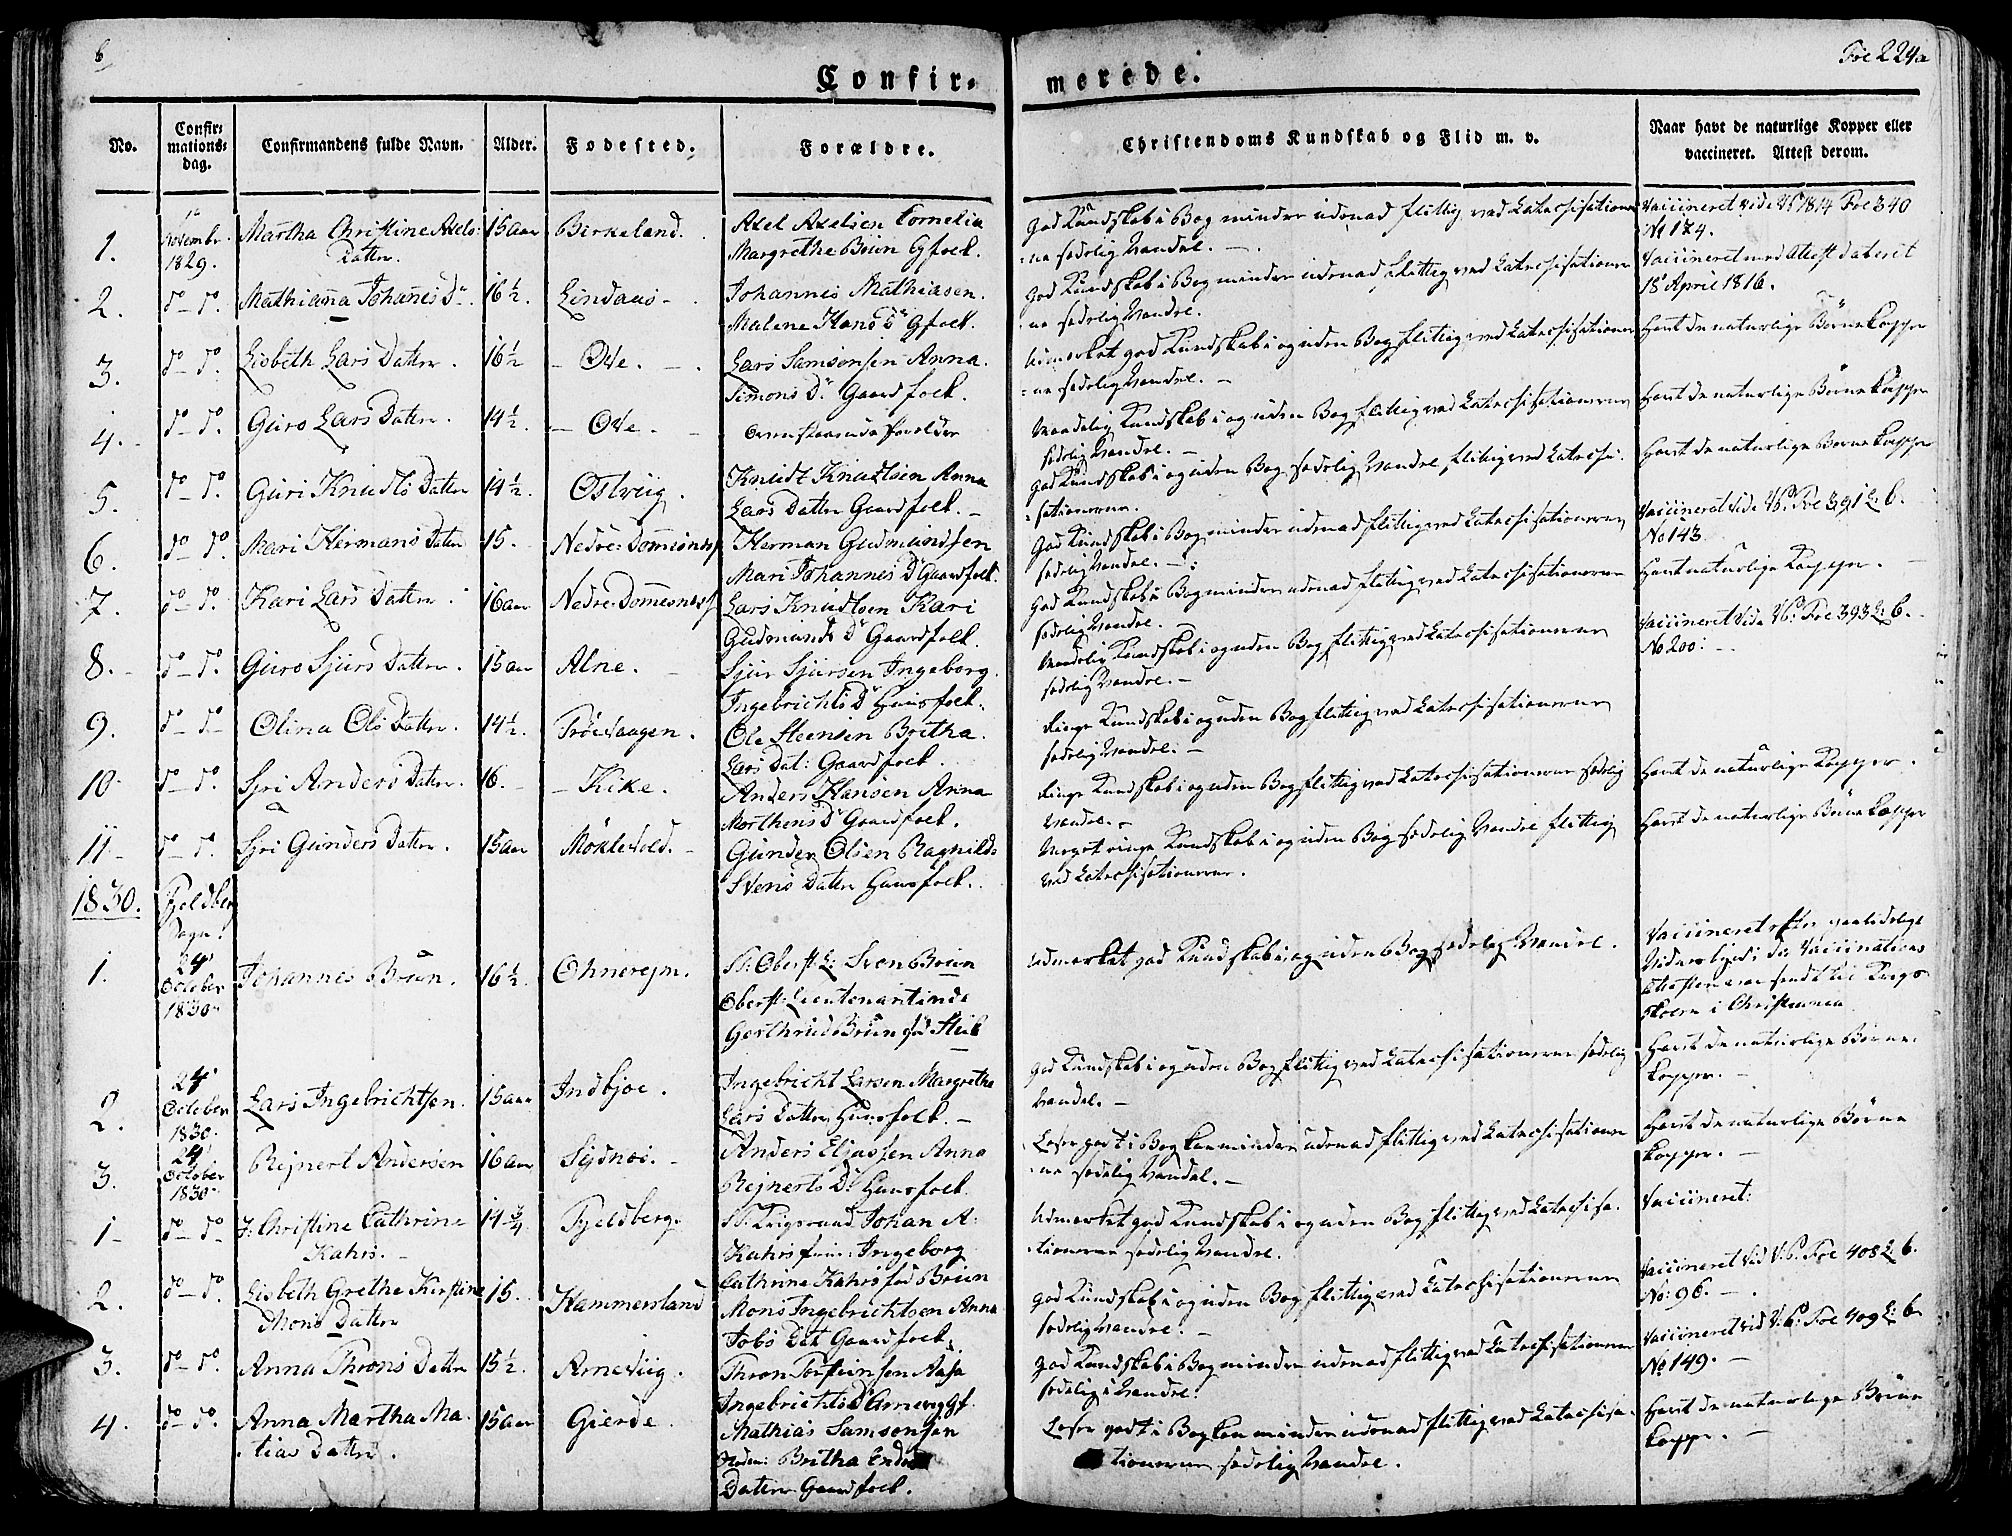 6
Confir-
merede.
Foe 224a
No.
Confir-
mations-
dag.
Confirmandens fulde Navn.
Alder.
Fødested.
Forældre.
Christendoms Kundskab og Flid m. v.
Naar havt de naturlige Kopper eller
vaccineret. Attest derom.
1. 1ste Novembr. 1829. Martha Christine Axels Datter. 15 aar Birkeland. Axel Axelsen Cornelia
Margrethe Brun Gfolk.
God Kundskab i Bog mindre udenad flittig ved Catechisationer-
ne sædelig Vandel.
Vaccineret vide 1814 Foe 340
No 174.
2. do do. Mathianna Johanes Dr. 16½. Lindaas Johannes Mathiasen.
Malene Hans Dr Gfolk.
God Kundskab i Bog mindre udenad flittig ved Catechisationer-
ne sædelig Vandel.
Vaccineret med Attest dateret
18 April 1816.
3. do do. Lisbeth Lars Datter. 16½ Ove. Lars Samsonsen Anna
Simons Dr. Gaardfolk.
Udmerket god Kundskab i og uden Bog flittig ved Catechisationer-
ne sædelig Vandel.
Havt de naturlige Børne Kopper
4. do do. Guro Lars Datter. 14½. Ove. Ovenstaaende Forældre
Maadelig Kundskab i og uden Bog flittig ved Catechisationerne
sædelig Vandel.
Havt de naturlige Børne Kopper
5. do do. Guri Knudts Datter 14½. Ostviig. Knudt Knudtsen Anna
Lars Datter Gaardfolk.
God Kundskab i og uden Bog sædelig Vandel flittig ved Catechi-
sationerne.
Havt de naturlige Børne Kopper
6. do do. Mari Hermans Datter 15. Nedre Domesnes Herman Gudmundsen
Mari Johannes Dr Gaardfolk.
God Kundskab i Bog mindre udenad flittig ved Catechisationerne
sædelig Vandel.
Vaccineret vide V6 Foe 391 L 6.
No 143.
7. do do. Kari Lars Datter 16 aar Nedre Domesnes Lars Knudtsen Kari
Gudmunds Dr Gaardfolk.
God Kundskab i Bog mindre udenad flittig ved Catechisationerne
sædelig Vandel.
Havt naturlige Kopper.
8. do do. Guro Sjurs Datter. 15 aar Alne. Sjur Sjursen Ingeborg
Ingebrichts Dr Huusfolk.
Maadelig Kundskab i og uden Bog flittig ved Catechisationerne
sædelig Vandel.
Vaccineret vide V6: Foe 393 L 6.
No 200.
9. do do Olina Ols Datter. 14½. Trøevaagen. Ole Steensen Britha
Lars Dat: Gaardfolk.
Ringe Kundskab i og uden Bog flittig ved Catechisationerne
sædelig Vandel.
10. do do. Sjri Anders Datter. 16. Kike. Anders Hansen Anna
Morthens Dr Gaardfolk.
Ringe Kundskab i og uden Bog flittig ved Catechisationerne sædelig
Vandel.
Havt de naturlige Kopper.
11 do do. Sjri Gunders Datter. 15 aar Møklevold. Gunder Olsen Ragnilde
Stens Datter Huusfolk.
Meget ringe Kundskab i og uden Bog sædelig Vandel flittig
ved Catechisationerne.
Havt de naturlige Børne Kopper
1830. Fjeldberg
Sogn.
1. 24 October 1830. Johannes Brun. 16½. Ohnerejm. St: Oberst L: Sven Brun
Oberst-Lieutenantinde
Gerthrud Brun fød Heib
Udmerket god Kundskab i og uden Bog sædelig Vandel.
Vaccineret efter paalidelige
Vidnesbyrd i det Vaccinations
Attesten var sendt til Krigs-
skolen i Christiania
2. 24 October 1830. Lars Ingebrichtsen. 15 aar Indbjoe. Ingebricht Larsen Margretha
Lars Datter Huusfolk.
God Kundskab i og uden Bog flittig ved Catechisationerne sædelig
Vandel.
Havt de naturlige Børne-
kopper.
3. 24 October 1830. Rejnert Andersen 16 aar Sydnæs. Anders Eliassen Anna
Rejnerts Dr Huusfolk.
Læser godt i Bog kan mindre udenad flittig ved Catechisationer-
ne sædelig Vandel.
Havt de naturlige Børne
kopper.
1 do do J: Christine Cathrine
Kahrs. 14¾ Fjeldberg. St: Krigsraad Johan A:
Kahrs frue: Ingeborg
Cathrine Kahrs fød Brun
Udmerket god Kundskab i og uden Bog flittig ved Catechisa-
tionerne sædelig Vandel.
Vaccineret:
2. do do. Lisbeth Grethe Kirstine
Mons Datter 15. Hammersland Mons Ingebrichtsen Anna
Jobs Dat Gaardfolk.
God Kundskab i og uden Bog flittig ved Catechisationerne
sædelig Vandel.
Vaccineret vid V:6: Foe 408 L 6.
No: 96.
3. do do. Anna Throns Datter 15½. Arneviig. Thron Torsteinsen Aasa
Ingebrichts Dr
God Kundskab i Bog mindre udenad flittig ved Catechisationerne
sædelig Vandel.
Vaccineret vid V:6: Foe 409 L: 6
No 149.
4. do do. Anna Martha Ma-
tias Datter. 15 aar Gierde. Mathias Samsonsen
Britha Endre
Datter Gaardfolk.
Læser godt i Bog kan mindre udenad flittig ved Catechisa-
tionerne sædelig Vandel.
Havt de naturlige Børne
kopper.